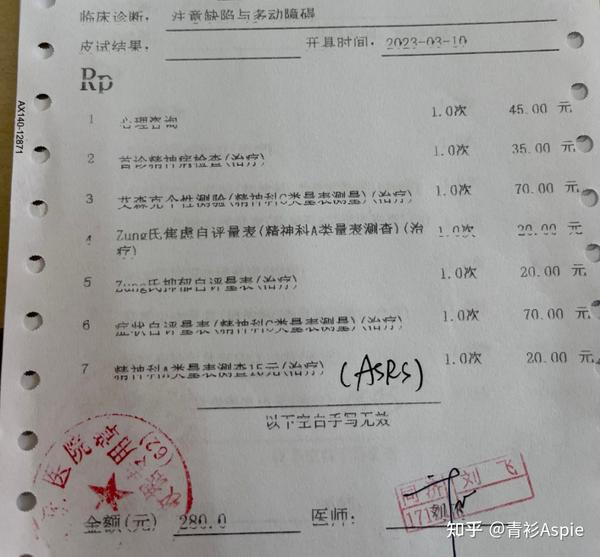 临床诊断: 注意缺陷与多动障碍
皮试结果: 开具时间: 2023-03-10
Rp
AX140-12871
1 心理咨询 1.0次 45.00 元
2 首诊精神病检查(治疗) 1.0次 35.00 元
3 艾森克个性测验(精神科C类量表测量)(治疗) 1.0次 70.00 元
4 Zung氏焦虑自评量表(精神科A类量表测查)(治疗) 1.0次 20.00 元
5 Zung氏抑郁自评量表(治疗) 1.0次 20.00 元
6 症状自评量表(精神科C类量表测量)(治疗) 1.0次 70.00 元
7 精神科A类量表测查15元(治疗) (ASRS) 1.0次 20.00 元
以下空白手写无效
医院 专用 (62)
金额(元) 280.0 医师:
刘飞
知乎 @青衫Aspie